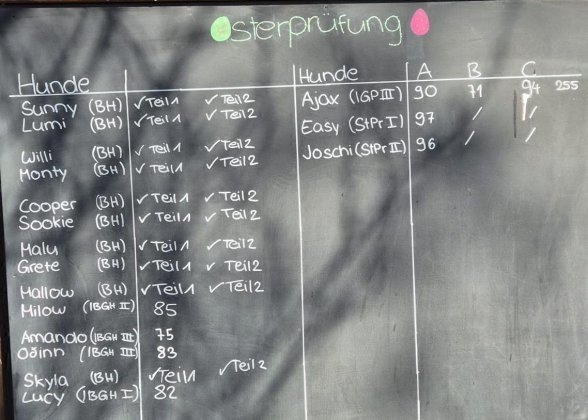 Osterprüfung
Hunde
Sunny (BH) ✓Teil1 ✓Teil2
Lumi (BH) ✓Teil1 ✓Teil2
Willi (BH) ✓Teil1 ✓Teil2
Monty (BH) ✓Teil1 ✓Teil2
Cooper (BH) ✓Teil1 ✓Teil2
Sookie (BH) ✓Teil1 ✓Teil2
Malu (BH) ✓Teil1 ✓Teil2
Grete (BH) ✓Teil1 ✓Teil2
Mallow (BH) ✓Teil1 ✓Teil2
Milow (IBGH II) 85
Amando (IBGH III) 75
Oðinn (IBGH III) 83
Skyla (BH) ✓Teil1 ✓Teil2
Lucy (IBGH I) 82
Hunde A B C
Ajax (IGP III) 90 71 94 255
Easy (StPr I) 97 / /
Joschi (StPr II) 96 / /